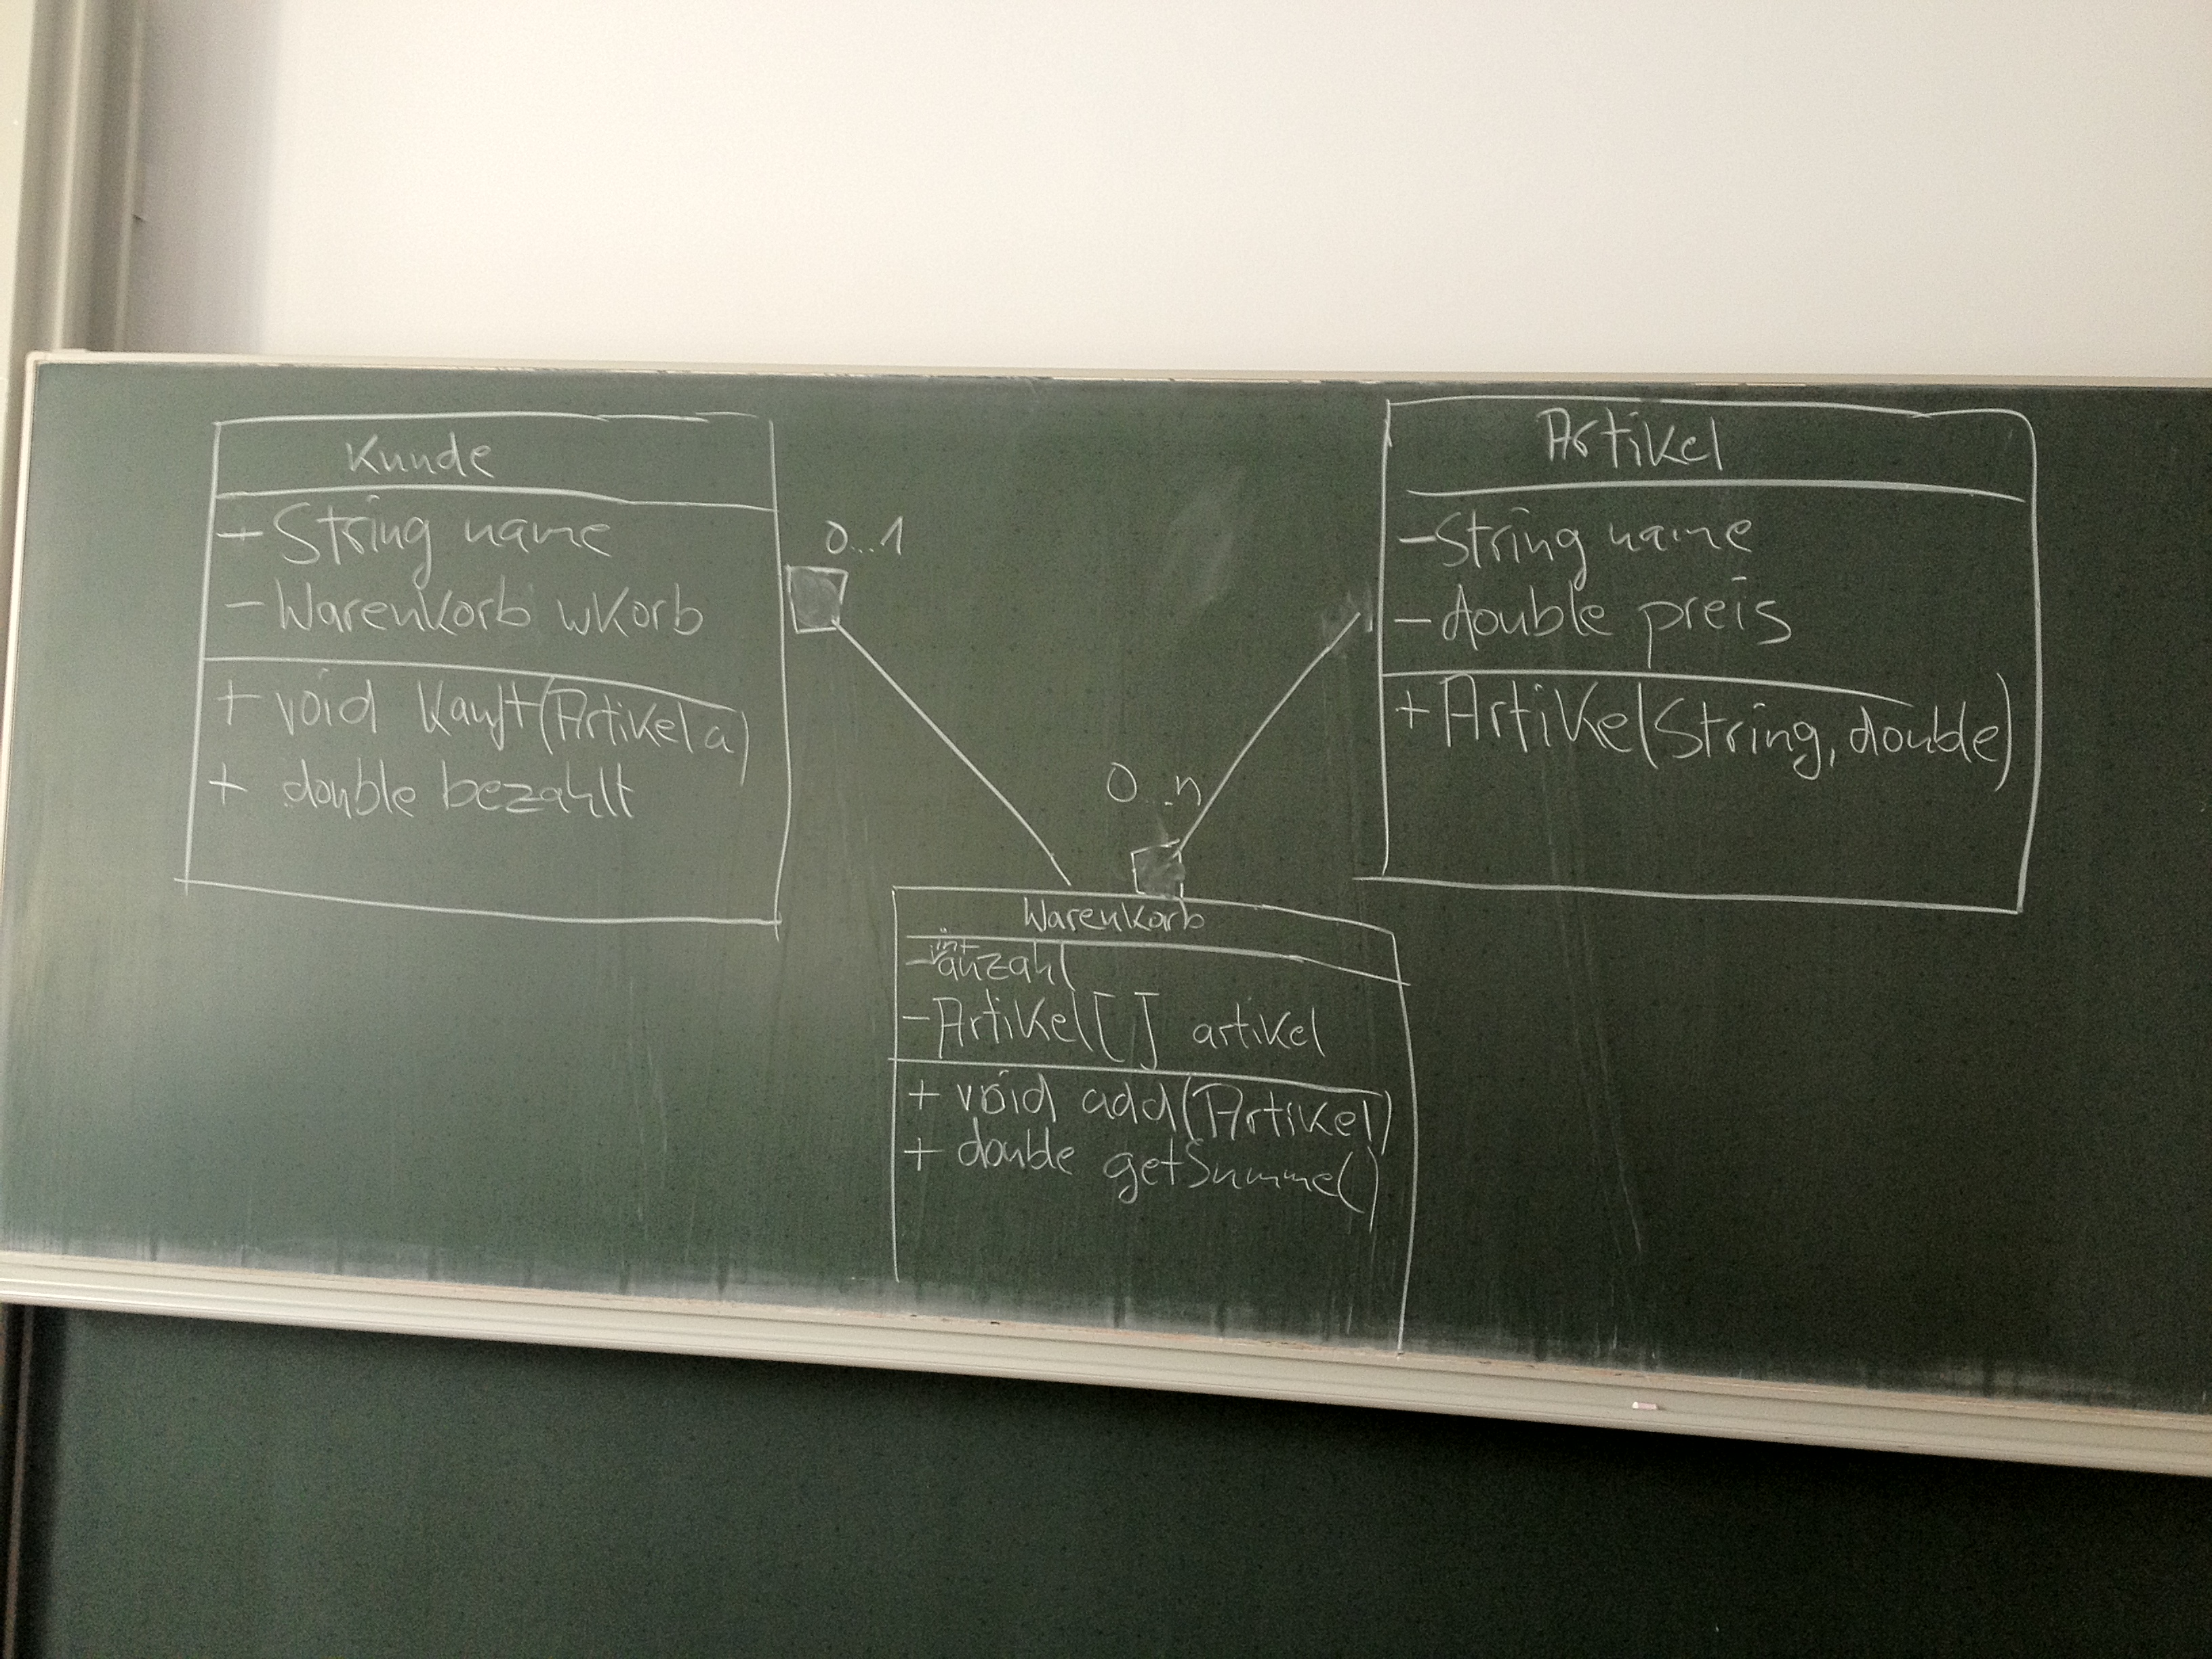 Kunde
+ String name
- Warenkorb wKorb
+ void kauft(Artikel a)
+ double bezahlt
0...1
Artikel
- String name
- double preis
+ Artikel(String, double)
0...n
Warenkorb
- int anzahl
- Artikel[] artikel
+ void add(Artikel)
+ double getSumme()